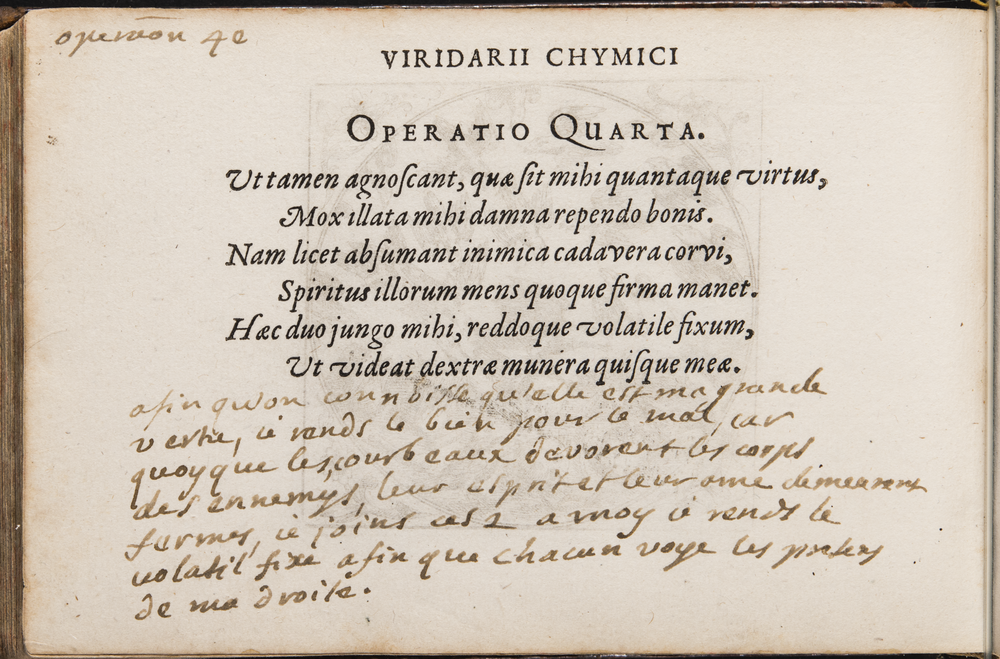 operaōn 4e
VIRIDARII CHYMICI
OPERATIO QUARTA.
Ut tamen agnoſcant, quæ ſit mihi quantaque virtus,
Mox illata mihi damna rependo bonis.
Nam licet abſumant inimica cadavera corvi,
Spiritus illorum mens quoque firma manet.
Hæc duo jungo mihi, reddoque volatile fixum,
Ut videat dextræ munera quiſque meæ.
afin qu'on connoisse qu'elle est ma grande
vertu, ie rends le bien pour le mal, car
quoyque les courbeaux devorent les corps
des ennemys, leur esprit et leur ame demeurent
fermes, ie joins ces 2 a moy ie rends le
volatil fixe afin que chacun voye les
de ma droite.